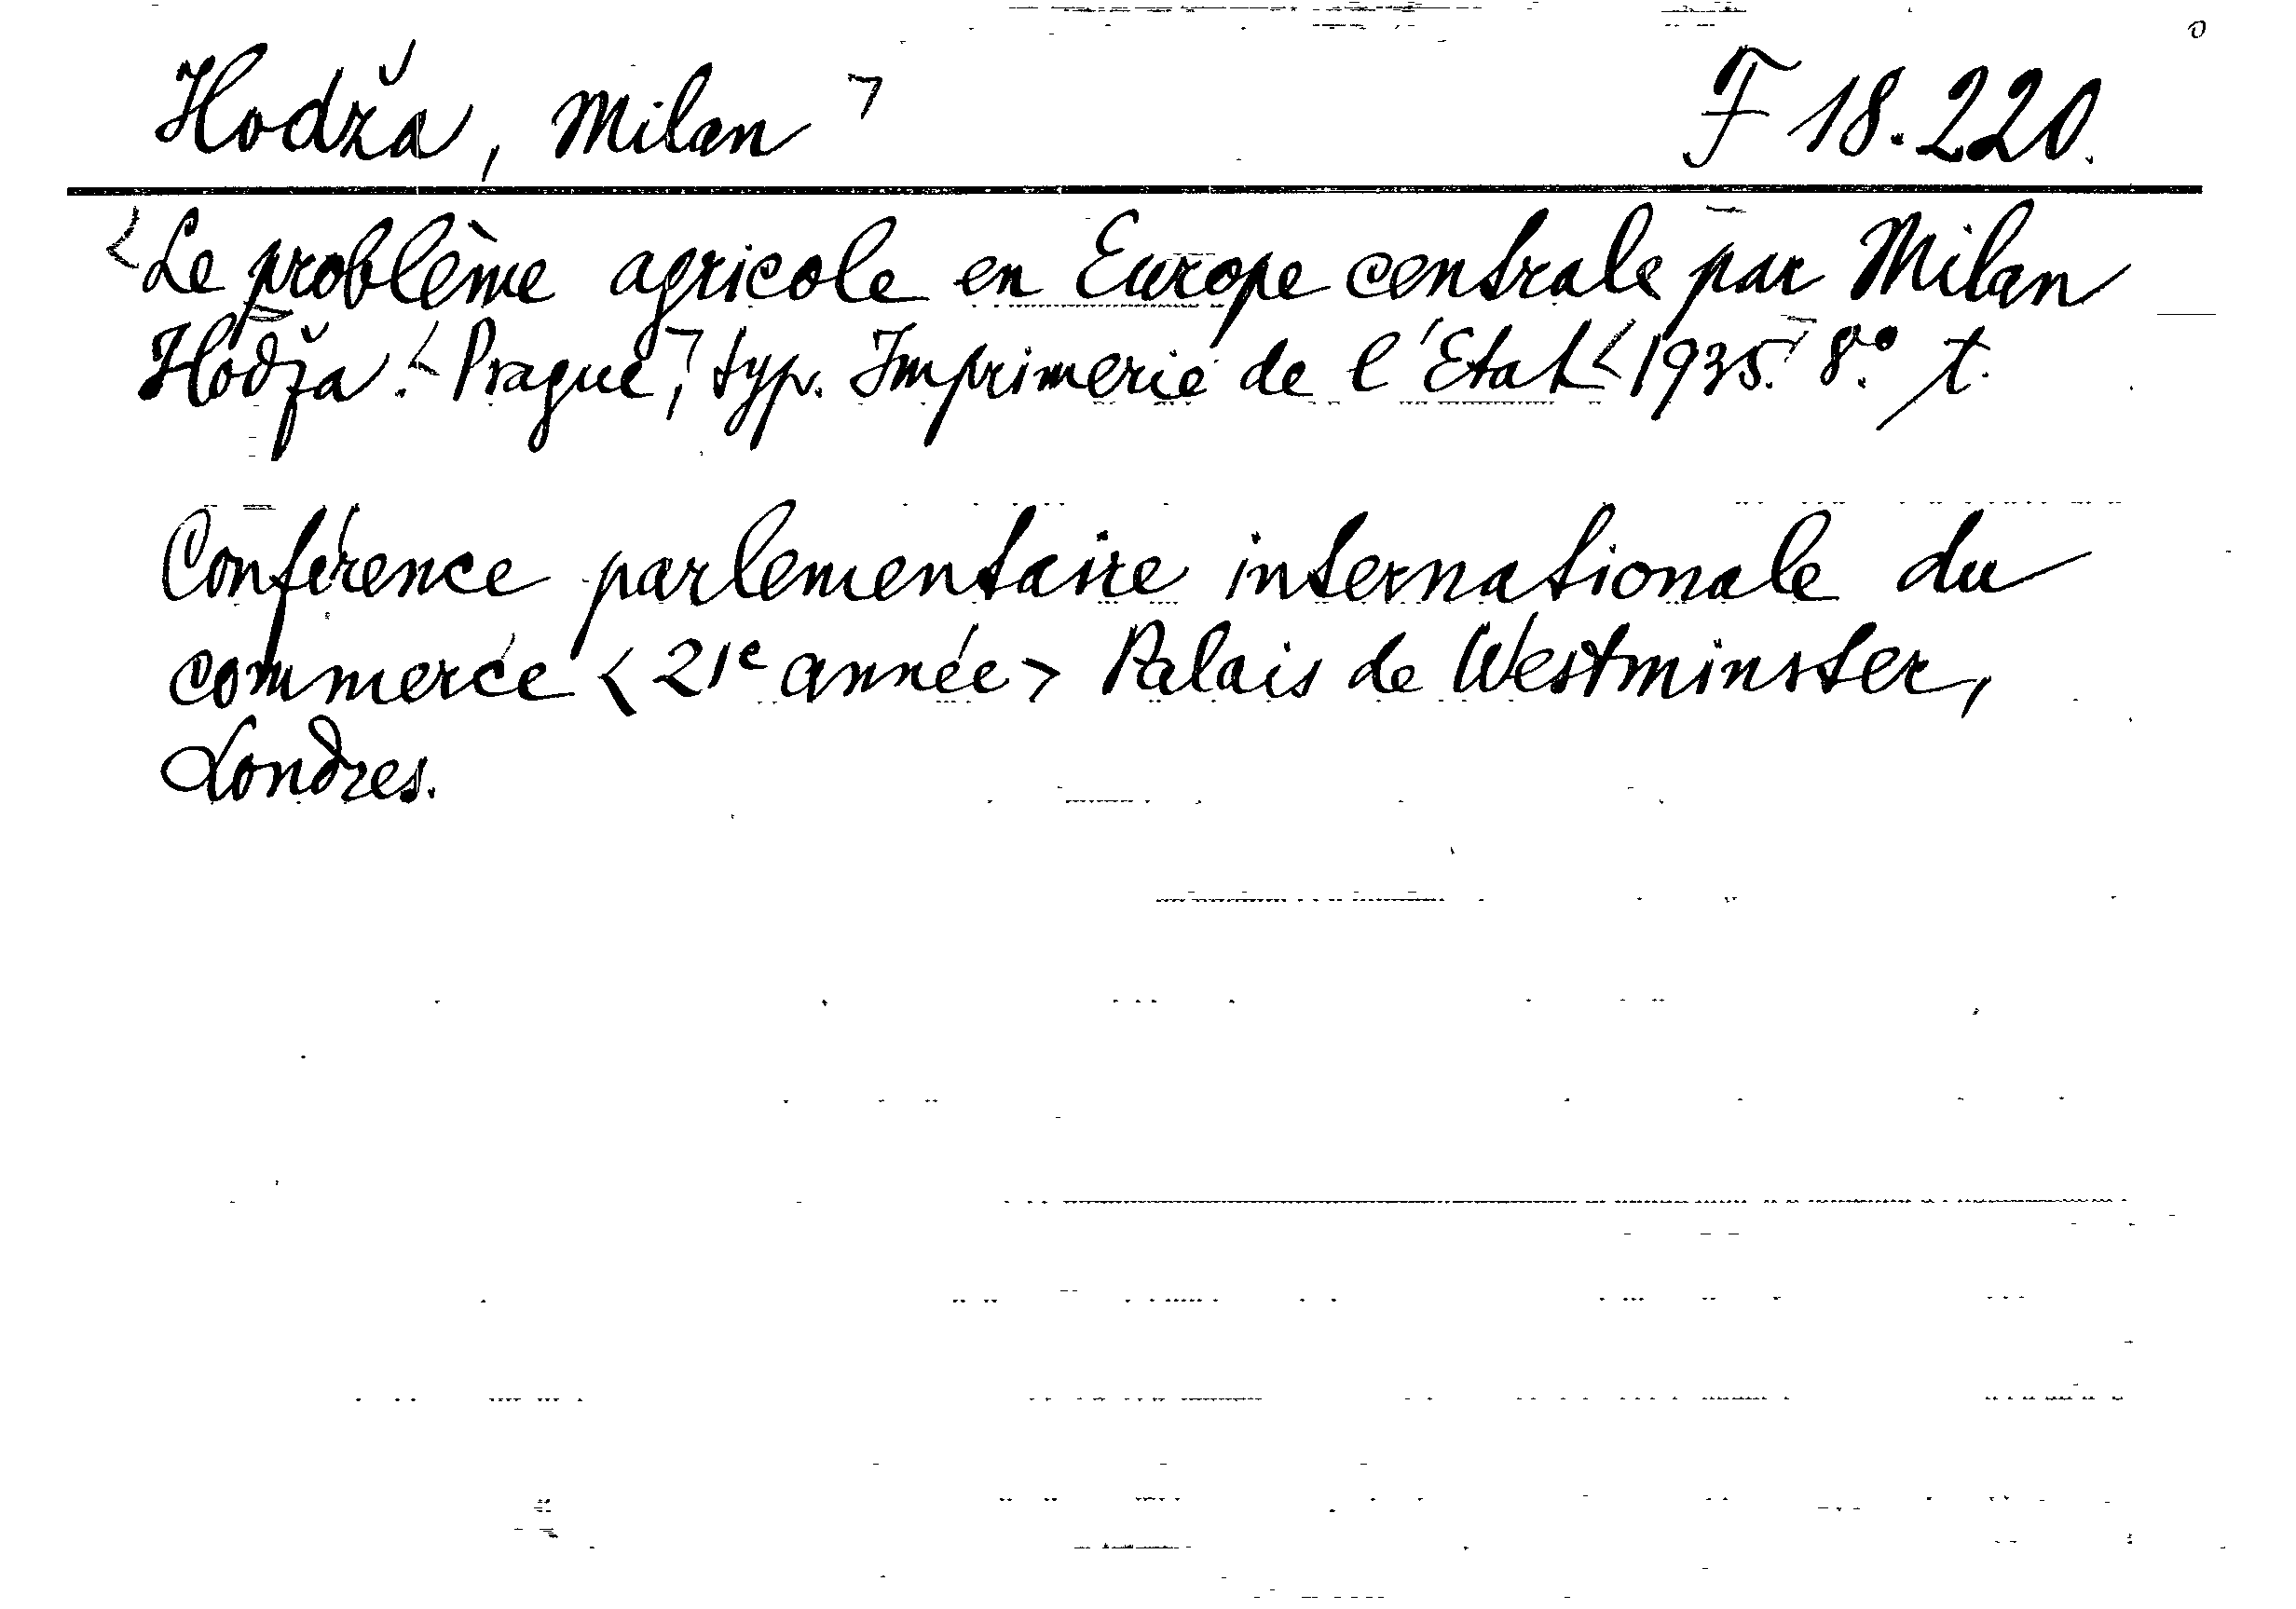 Hodža, Milan ㄱ F 18.220.
<Le problème agricole en Europe centrale par Milan
Hodža.< Prague,ㄱ typ. Imprimerie de l'Etat < 1935.ㄱ 8.º t.
Conférence parlementaire internationale du
commerce < 21e année > Palais de Westminster,
Londres.